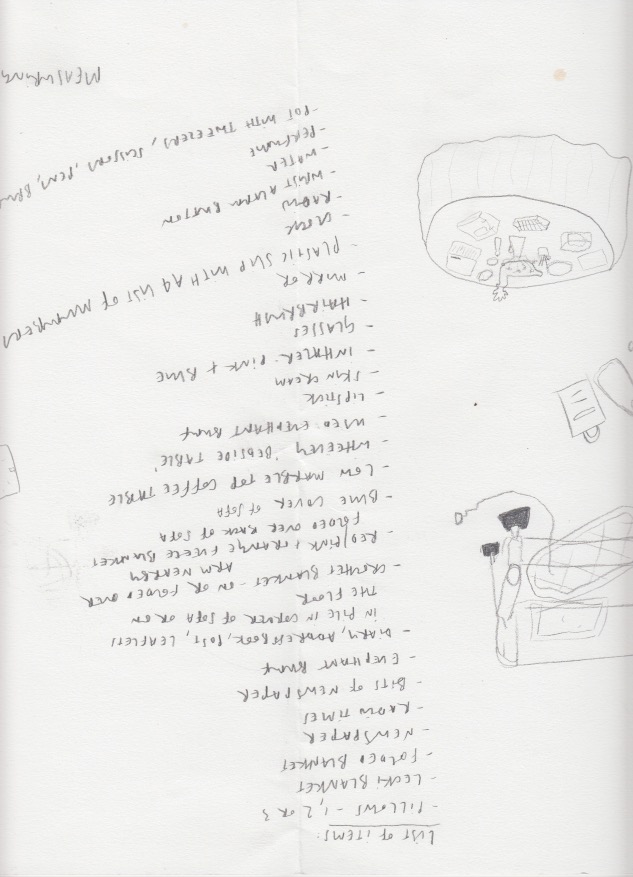 LIST OF ITEMS:
- PILLOWS - 1, 2 OR 3
- LECKI BLANKET
- FOLDED BLANKET
- NEWSPAPER
- RADIO TIMES
- BITS OF NEWSPAPER
- ELEPHANT
- DIARY, ADDRESS BOOK, POST, LEAFLETS
IN PILE IN CORNER OF SOFA OR ON
THE FLOOR
- CROCHET BLANKET - ON OR FOLDED OVER
ARM NEARBY
- RED/PINK + ORANGE FLEECE BLANKET
FOLDED OVER BACK OF SOFA
- BLUE COVER OF SOFA
- LOW MARBLE TOP COFFEE TABLE
- WHEELEY 'BEDSIDE TABLE'
- USED ELEPHANT
- LIPSTICK
- SKIN CREAM
- INHALER. PINK + BLUE
- GLASSES
- HAIRBRUSH
- MIRROR
- PLASTIC SLIP WITH A4 LIST OF NUMBERS
- CLOCK
- RADIO
- WRIST ALARM BUTTON
- WATER
- PERFUME
- POT WITH TWEEZERS, SCISSORS, PENS,
MEASURING